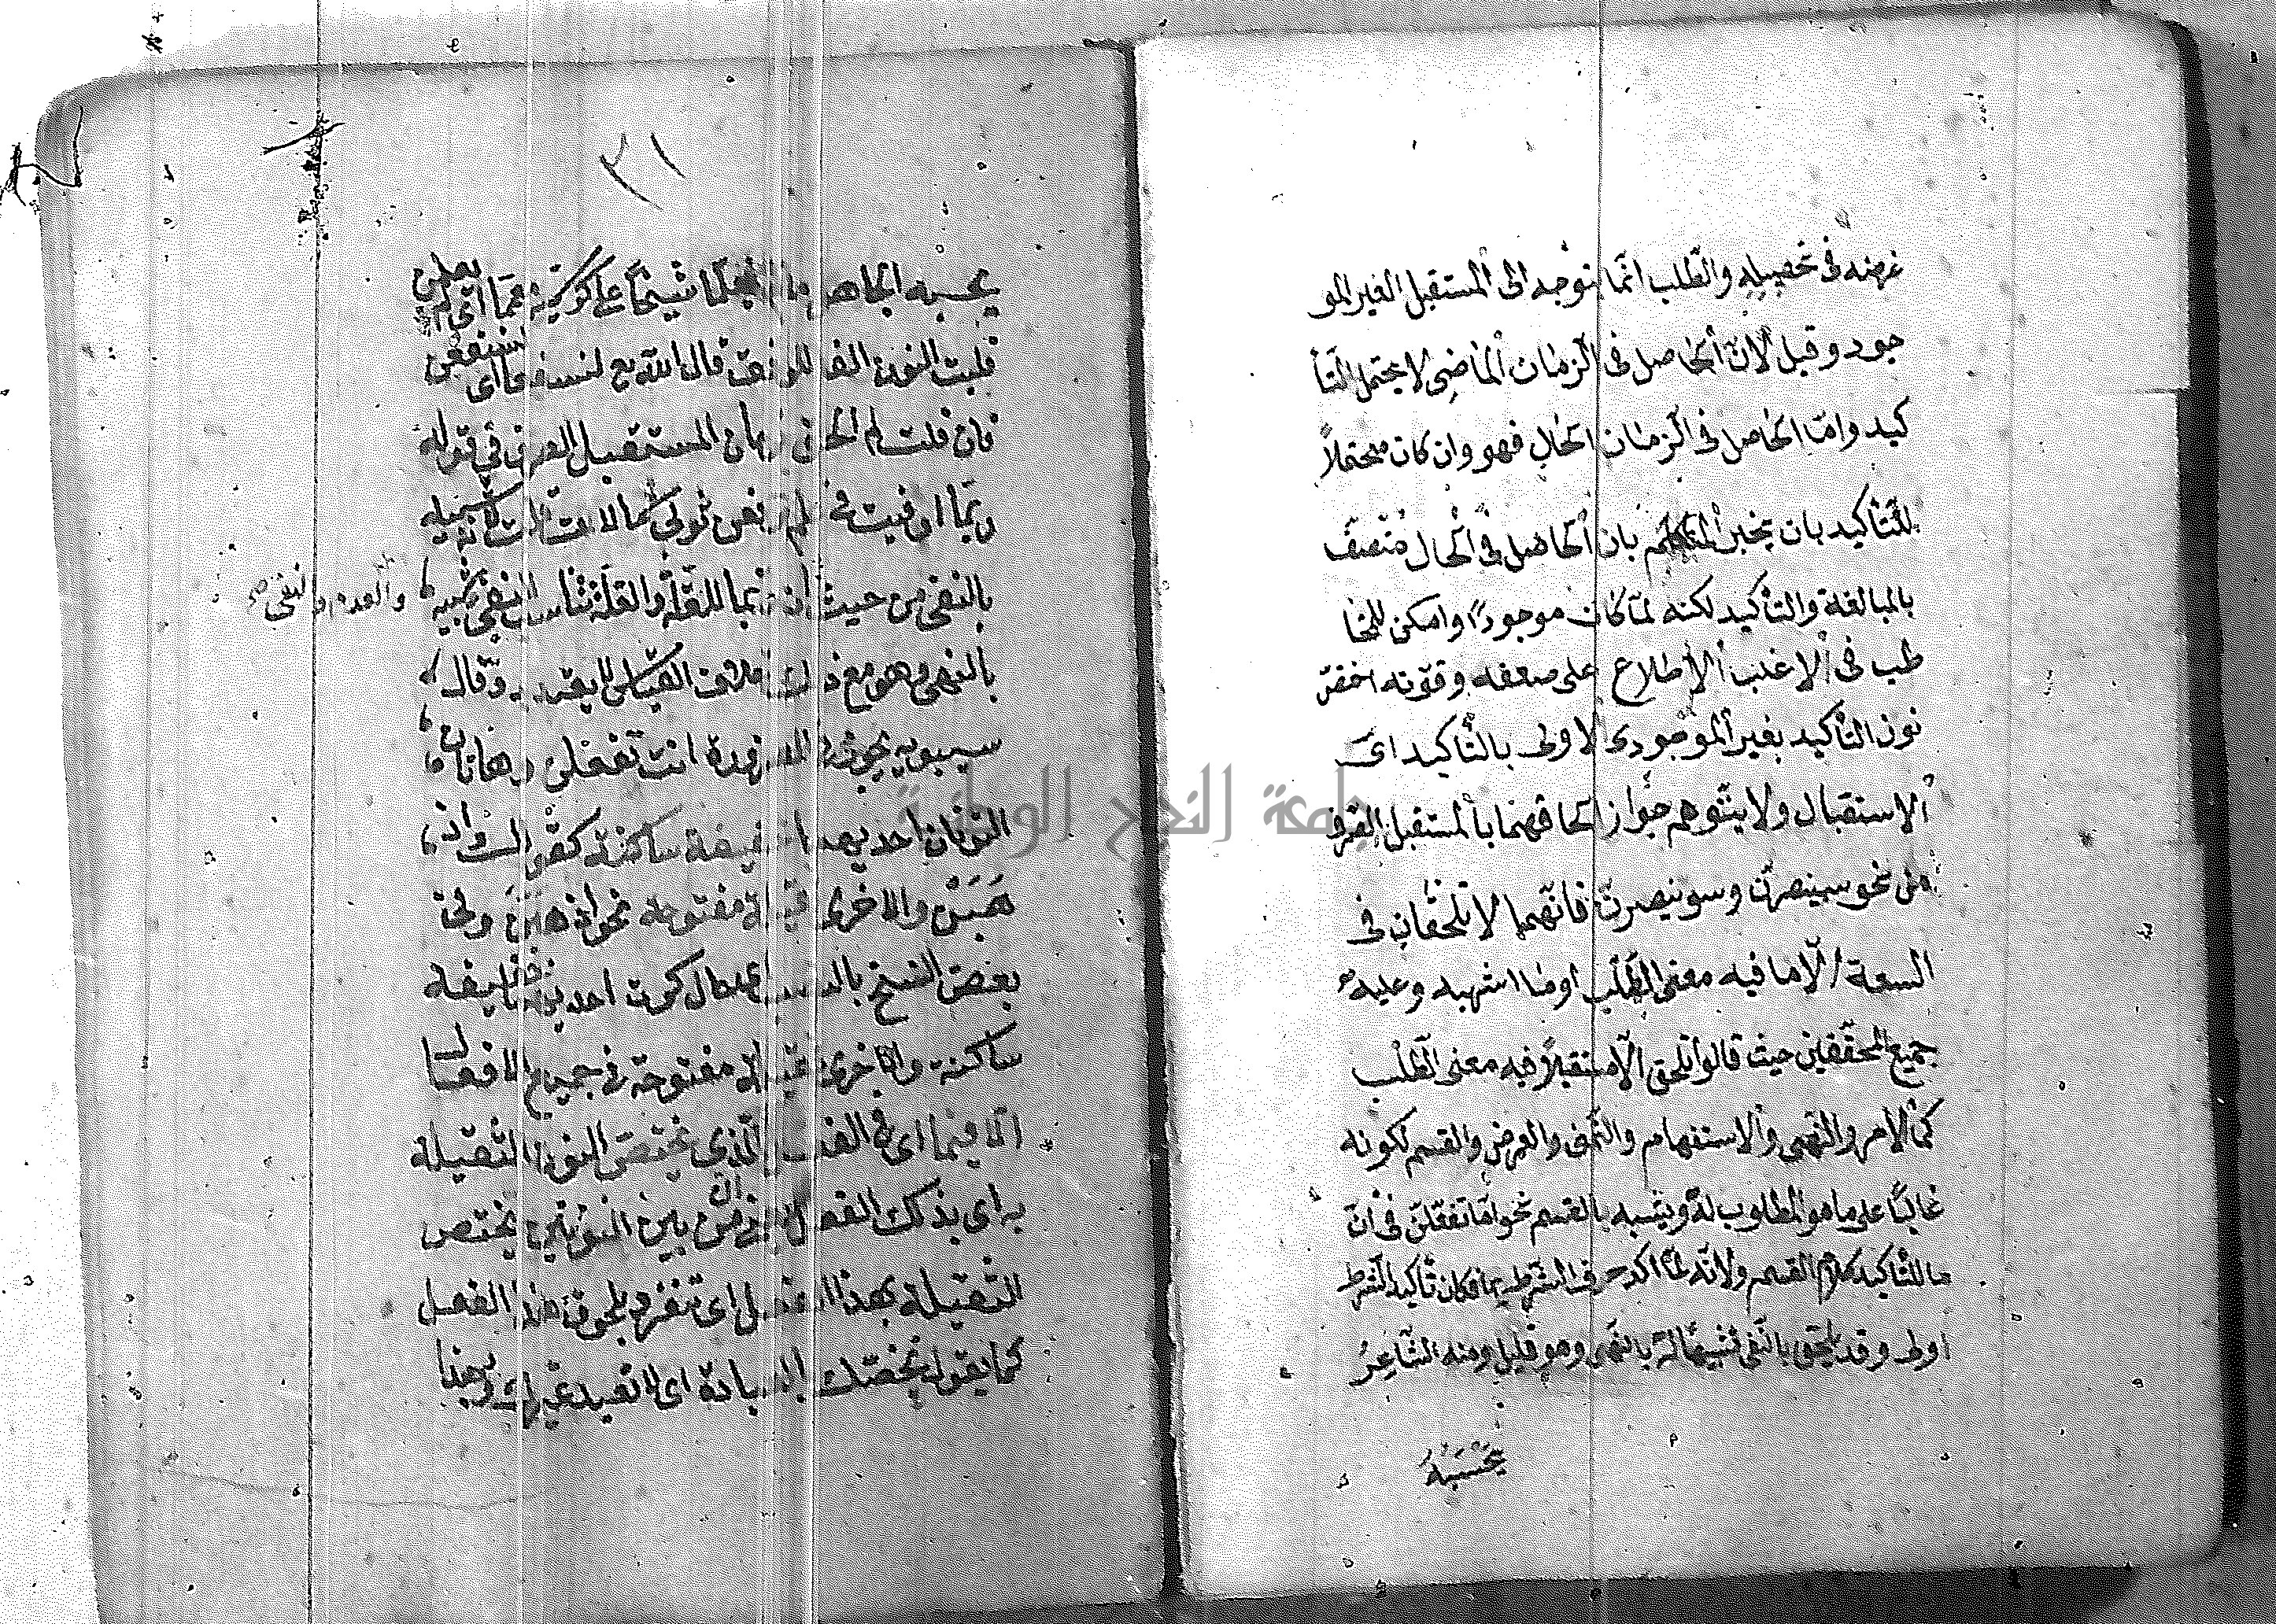 غرضه فى تحصيله والطلب انما يتوجه الى المستقبل الغير المو
جود وقيل لان الحاصل فى الزمان الماضى لا يحتمل التأ
كيد وامّا الحاصل فى الزمان الحال فهو وان كان محتملاً
للتأكيد بان يخبر المتكلم بان الحاصل فى الحال متصف
بالمبالغة والتأكيد لكنه لمّا كان موجودًا وامكن للمخا
طب فى الاغلب الاطلاع على ضعفه وقوته اختص
نون التأكيد بغير الموجود الاولى بالتأكيد اى
الاستقبال ولا يتوهم جواز الحاقهما بالمستقبل الصرف
من نحو سينصرن وسوف ينصرن فانهما لا تلحقان فى
السعة الّا ما فيه معنى الطلب او ما اشبهه وعليه
جميع المحققين حيث قالوا تلحق الّا مستقبلاً فيه معنى الطلب
كالامر والنهى والاستفهام والتمنى والعرض والقسم لكونه
غالبًا على ما هو المطلوب له ويشبه بالقسم نحو امّا تفعلنّ فى انّ
ما للتأكيد كلام القسم ولانه لمّا اكد حرف الشرط بما فكان تأكيد الشرط
اولى وقد تلحق بالنفى تشبيها له بالنهى وهو قليل ومنه الشاعر
يَحْسَبُهُ
٢١
يحسبه الجاهل ما لم يعلما شيخًا على كرسيه معمّما اى لم يعلمن
قلبت النون الفا للوقف قال الله تع لنسفعا اى لنسفعن
فان قلت لم الحق بهما المستقبل الصرف فى قوله
ربما اوفيت فى علم ترفعن ثوبى شمالات قلت تشبيه
بالنفى من حيث ان ربما للقلة والقلة تناسب النفى
والعدم والنفى صح
بالنهى وهو مع ذلك خلاف القياس لا يعتد به وقال
سيبويه يجوز فى الضرورة انت تفعلن وهاتان
النونان احديهما خفيفة ساكنة كقولك اذ
هَبَنْ والاخرى ثقيلة مفتوحة نحو اذهبَنَّ وفى
بعض النسخ بالنصب اى حال كون احديهما خفيفة
ساكنة والاخرى ثقيلة مفتوحة فى جميع الافعال
الّا فيما اى فى الفعل الذى تختص النون الثقيلة
به اى بذلك الفعل من بين النونين يختص
الثقيلة بهذا الفعل اى تنفرد بلحوق هذا الفعل
كما يقول نخصك بالعبادة اى لا نعبد غيرك وهذا
جامعة النجاح الوطنية